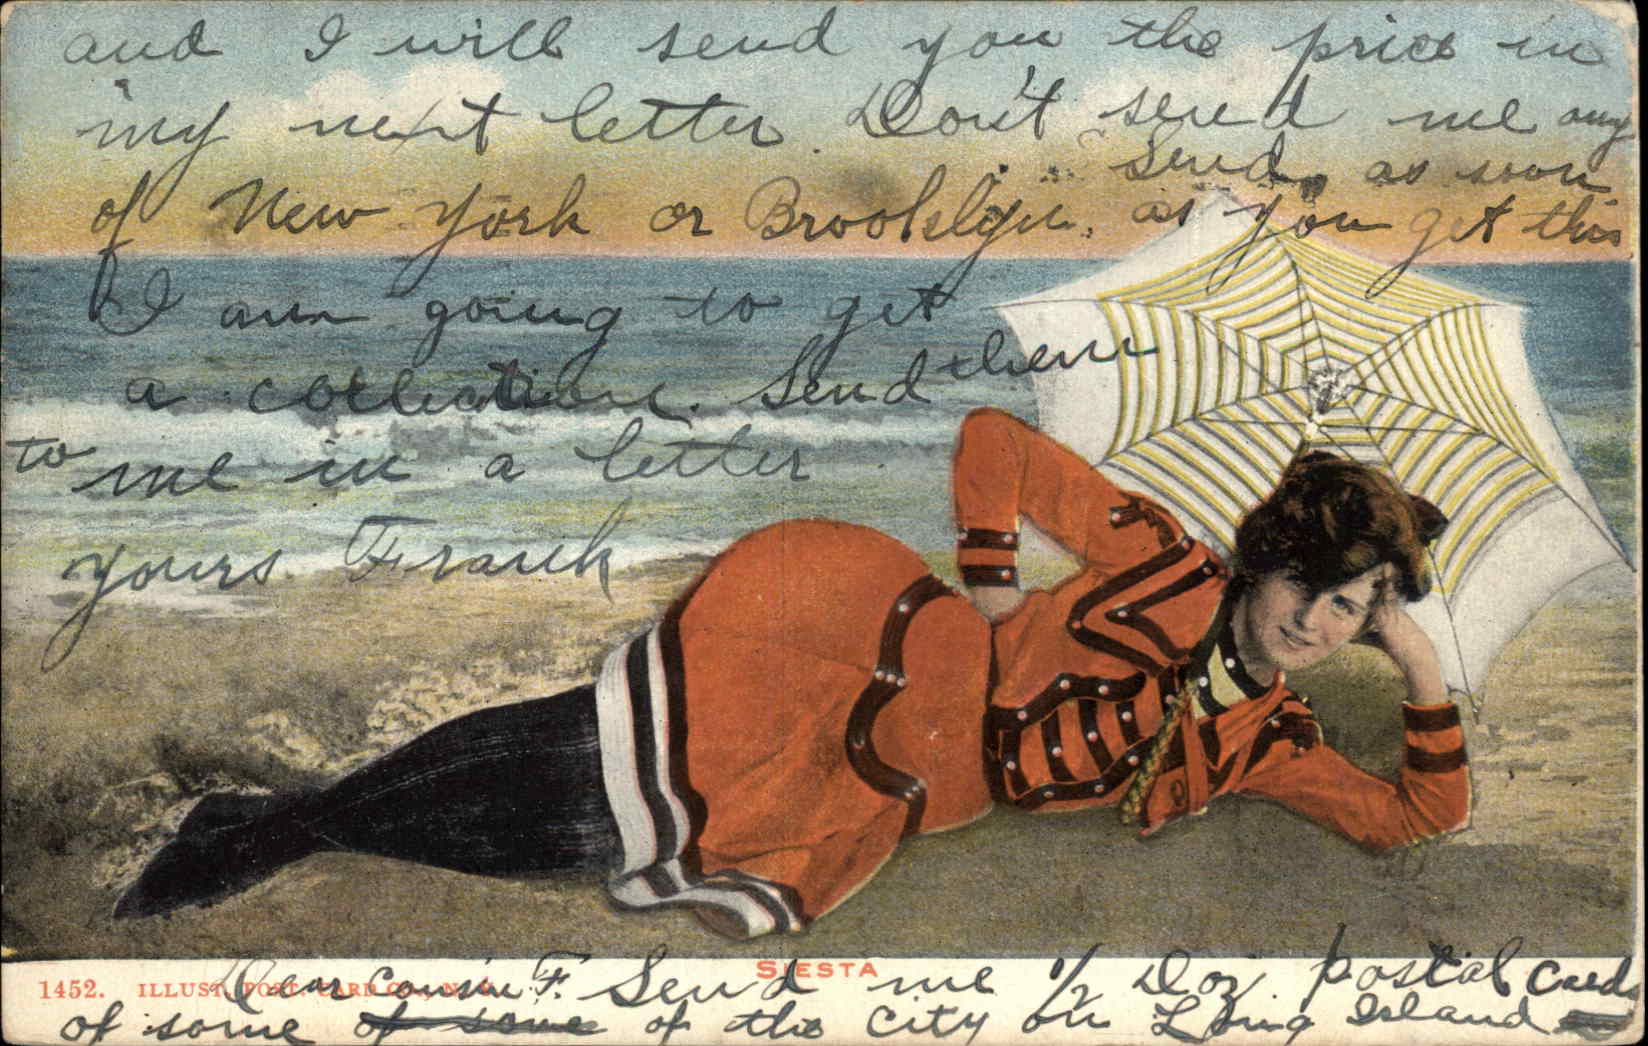 and I will send you the price in
my next letter. Don't send me any
of New York or Brooklyn.
Send as soon
as you get this
I am going to get
a collection. Send them
to me in a letter
yours Frank
SIESTA
1452. ILLUST. POST. CARD CO., N. Y.
Dear Cousin F. Send me 1/2 Doz postal Cards
of some of some of the City on Long Island